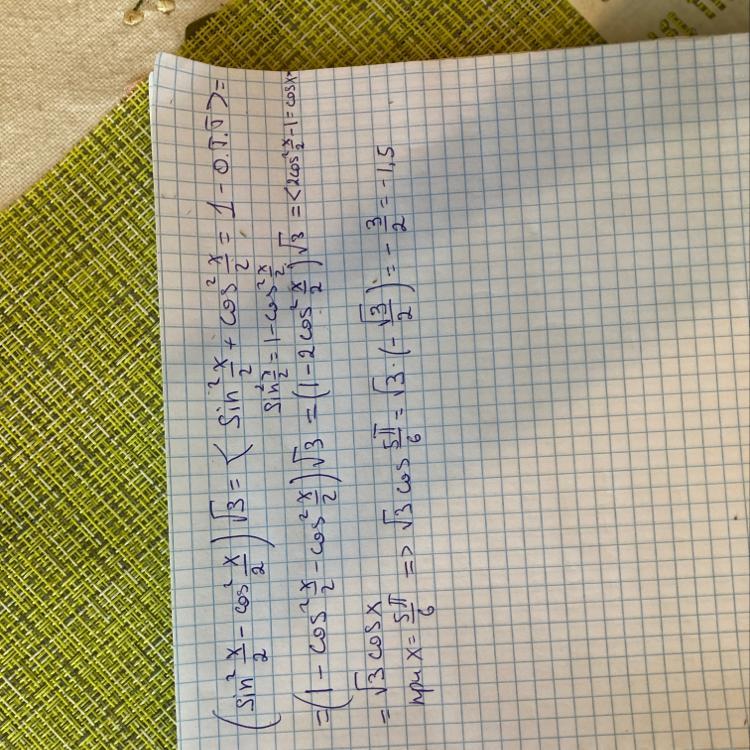 (sin² x/2 - cos² x/2)√3 = < sin² x/2 + cos² x/2 = 1 - О.Т.Т > =
sin² x/2 = 1 - cos² x/2
= (1 - cos² x/2 - cos² x/2)√3 = (1 - 2cos² x/2)√3 = <2cos² x/2 - 1 = cosx>
= √3 cosx
при x = 5π/6 => √3 cos 5π/6 = √3·(-√3/2) = - 3/2 = -1,5